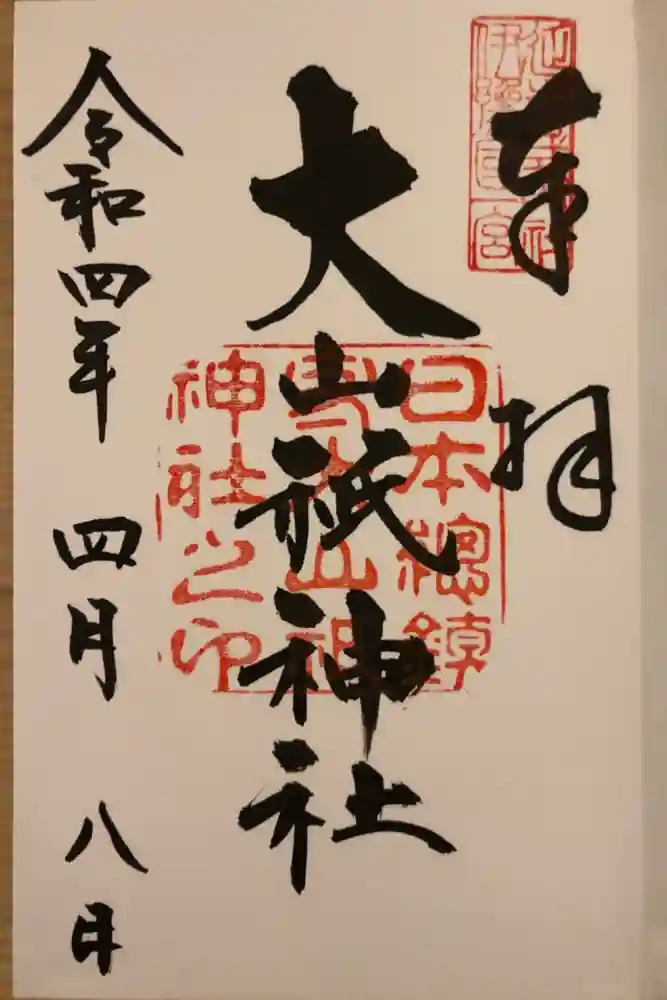 奉拝
伊豫國一宮
大山祇神社
日本總鎮
神社之印
令和四年 四月 八日